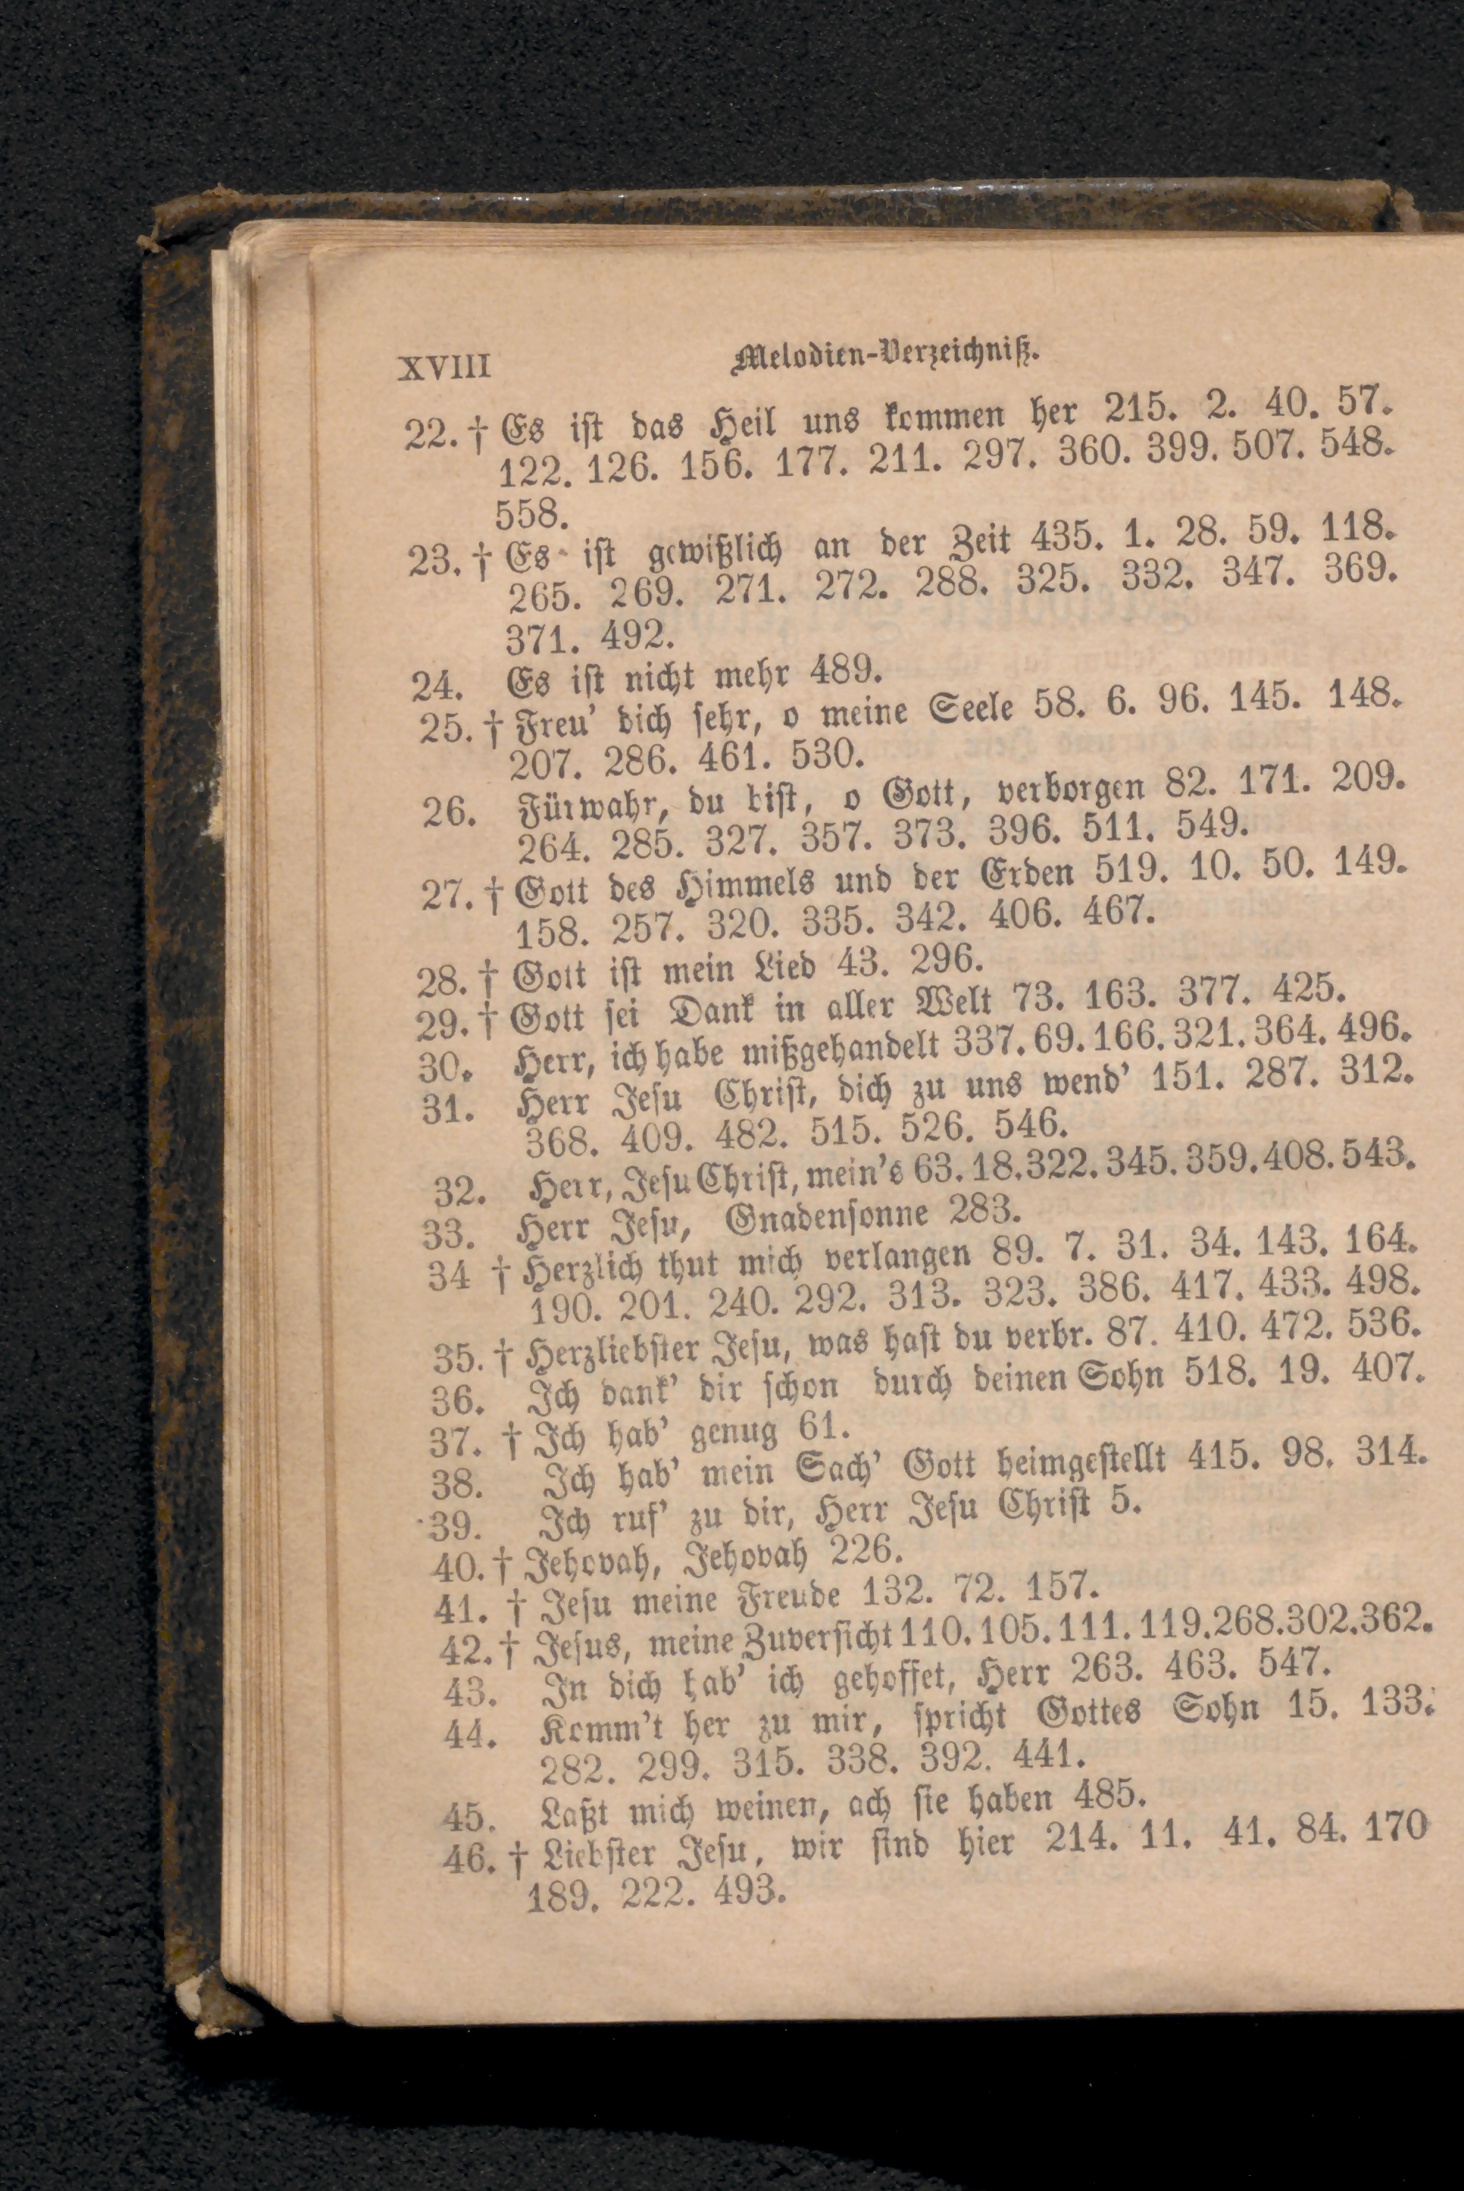 XVIII Melodien-Verzeichniß.
22. † Es ist das Heil uns kommen her 215. 2. 40. 57.
122. 126. 156. 177. 211. 297. 360. 399. 507. 548.
558.
23. † Es ist gewißlich an der Zeit 435. 1. 28. 59. 118.
265. 269. 271. 272. 288. 325. 332. 347. 369.
371. 492.
24. Es ist nicht mehr 489.
25. † Freu' dich sehr, o meine Seele 58. 6. 96. 145. 148.
207. 286. 461. 530.
26. Fürwahr, du bist, o Gott, verborgen 82. 171. 209.
264. 285. 327. 357. 373. 396. 511. 549.
27. † Gott des Himmels und der Erden 519. 10. 50. 149.
158. 257. 320. 335. 342. 406. 467.
28. † Gott ist mein Lied 43. 296.
29. † Gott sei Dank in aller Welt 73. 163. 377. 425.
30. Herr, ich habe mißgehandelt 337. 69. 166. 321. 364. 496.
31. Herr Jesu Christ, dich zu uns wend' 151. 287. 312.
368. 409. 482. 515. 526. 546.
32. Herr, Jesu Christ, mein's 63. 18. 322. 345. 359. 408. 543.
33. Herr Jesu, Gnadensonne 283.
34 † Herzlich thut mich verlangen 89. 7. 31. 34. 143. 164.
190. 201. 240. 292. 313. 323. 386. 417. 433. 498.
35. † Herzliebster Jesu, was hast du verbr. 87. 410. 472. 536.
36. Ich dank' dir schon durch deinen Sohn 518. 19. 407.
37. † Ich hab' genug 61.
38. Ich hab' mein Sach' Gott heimgestellt 415. 98. 314.
39. Ich ruf' zu dir, Herr Jesu Christ 5.
40. † Jehovah, Jehovah 226.
41. † Jesu meine Freude 132. 72. 157.
42. † Jesus, meine Zuversicht 110. 105. 111. 119. 268. 302. 362.
43. In dich hab' ich gehoffet, Herr 263. 463. 547.
44. Komm't her zu mir, spricht Gottes Sohn 15. 133.
282. 299. 315. 338. 392. 441.
45. Laßt mich weinen, ach sie haben 485.
46. † Liebster Jesu, wir sind hier 214. 11. 41. 84. 170
189. 222. 493.